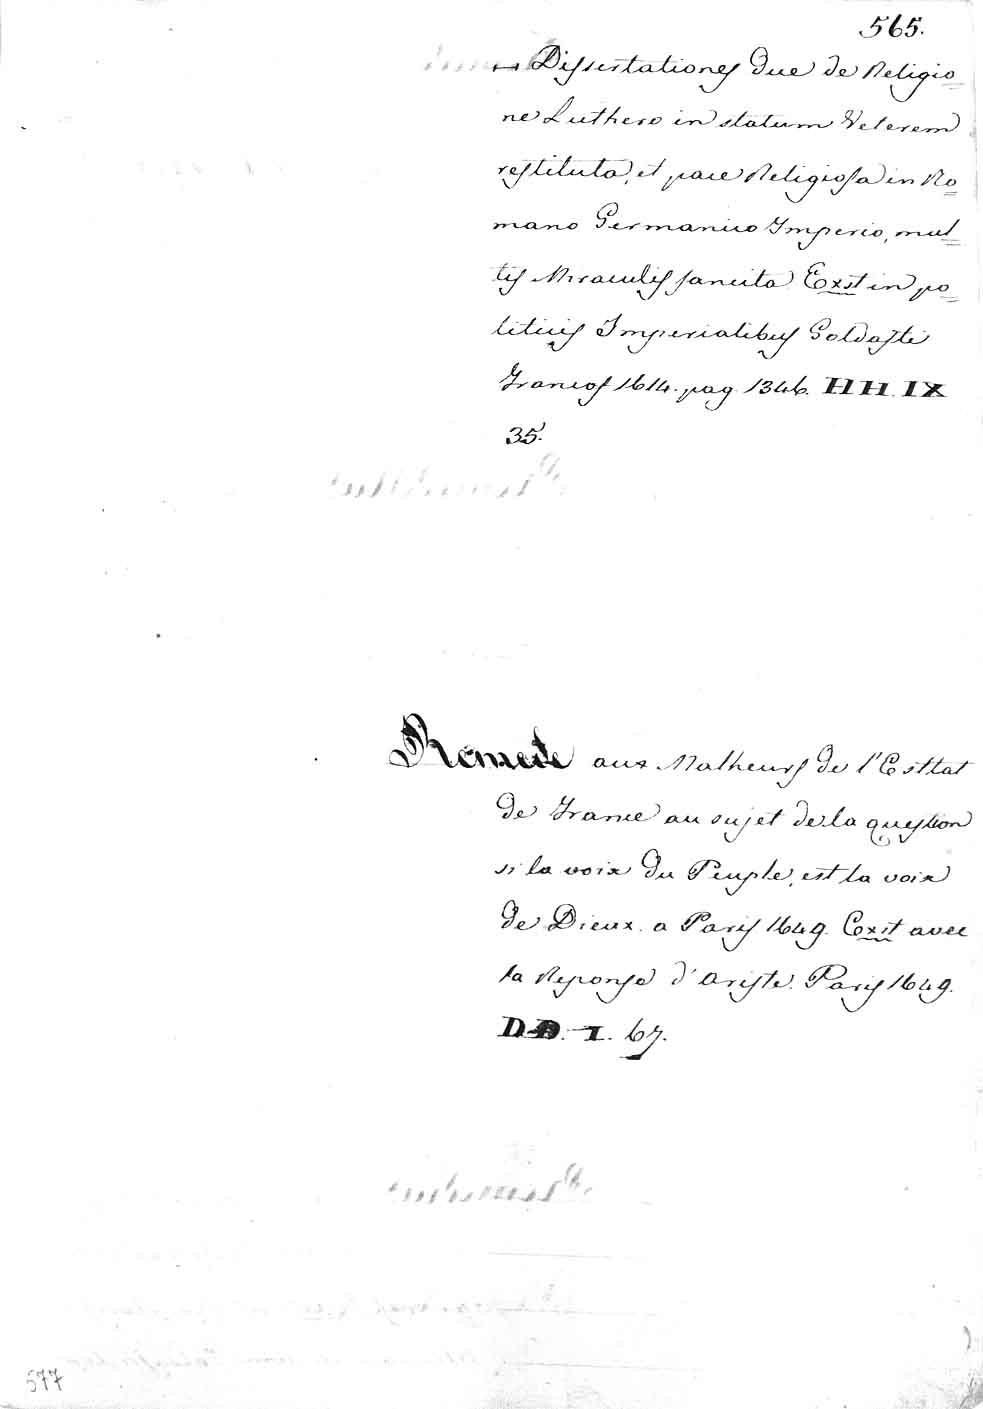 565.
Dissertationes due de Religio=
ne Luthero in statum Veterem
restituta, et pace Religiosa in Ro=
mano Germanico Imperio, mul=
tis Miraculis sancita Exst in po=
liticis Imperialibus Goldasti
Francof 1614. pag. 1346. HH. IX
35.
Remede aux Malheurs de l'Esttat
de France au sujet de la question
si la voix du Peuple, est la voix
de Dieux. a Paris 1649. Exst avec
la Reponse d'Ariste. Paris 1649.
DD. I. 67.
577